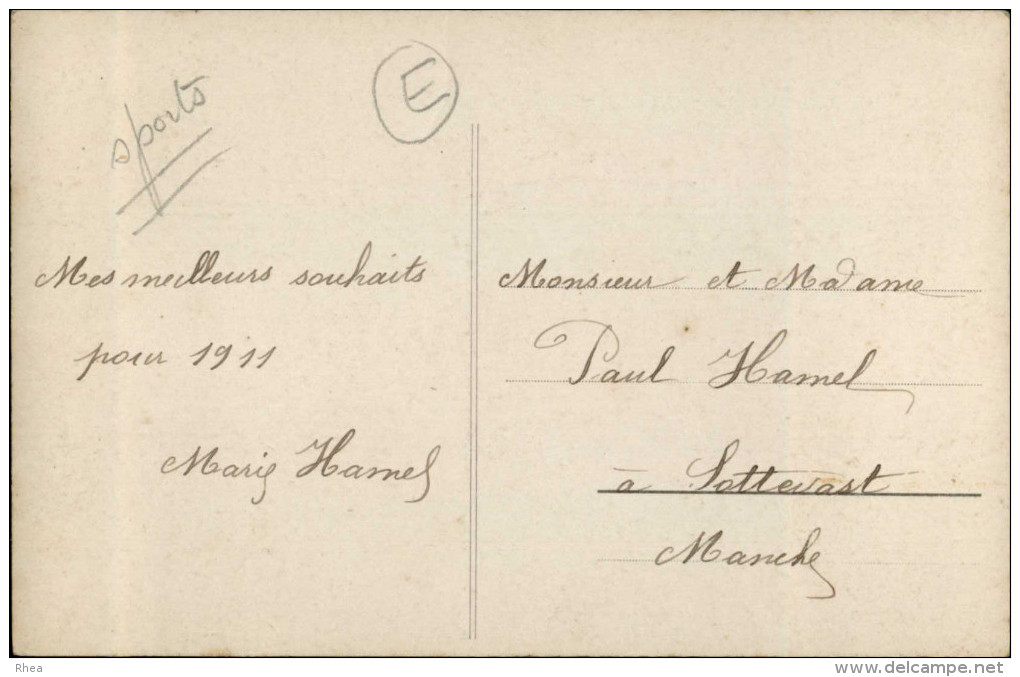 sports
E
Mes meilleurs souhaits
pour 1911
Marie Hamel
Monsieur et Madame
Paul Hamel
à Sottevast
Manche
Rhea
www.delcampe.net